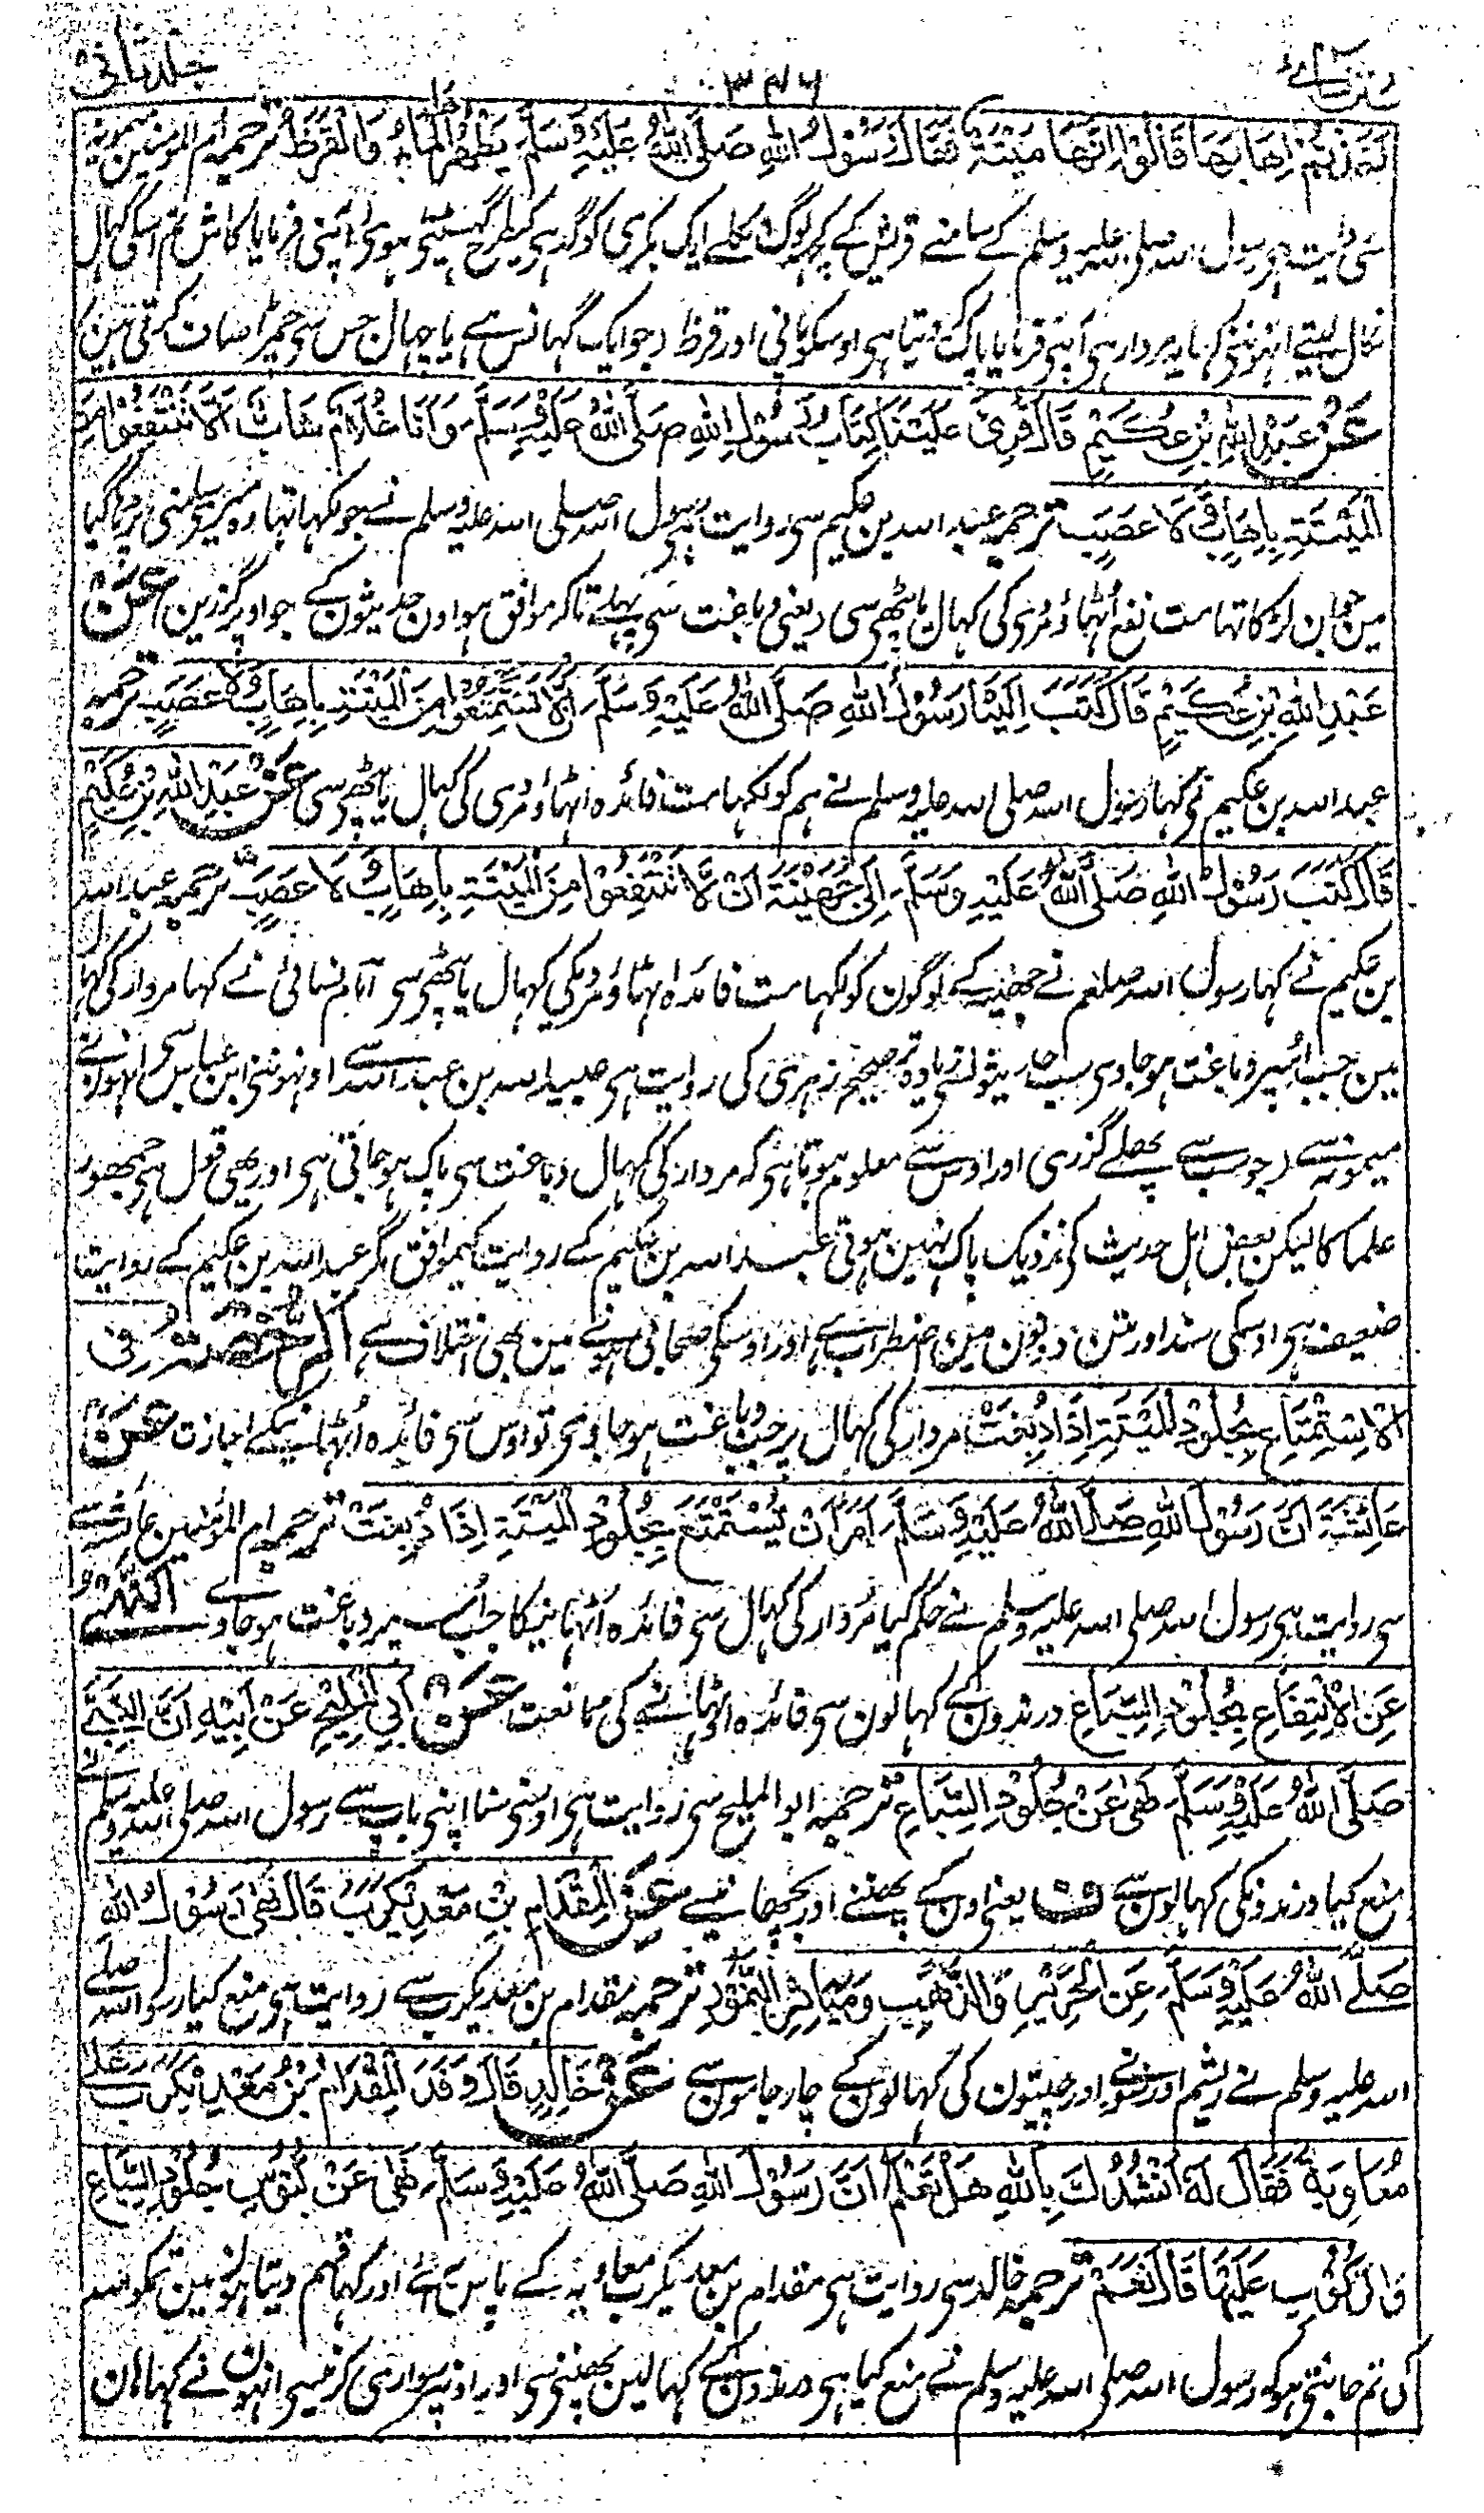 سنن نسائی ۳۴۶ جلد ثانی
تم اخذتم اِهَابَهَا قَالُوْا اِنَّهَا مَيْتَةٌ فَقَالَ رَسُوْلُ اللهِ صَلَّى اللهُ عَلَيْهِ وَسَلَّمَ يُطَهِّرُهَا الْمَاءُ وَالْقَرَظُ ترجمہ ام المومنین میمونہ
سی روایت ہی رسول اللہ صلی اللہ علیہ وسلم کے سامنے قریش کے کچہ لوگ نکلے ایک بکری کو گدہی کیطرح گہسیٹتی ہوی اپنی فرمایا کاش تم اسکی کہال
نکال لیتے انہوننی کہا یہ مردار ہی اپنی فرمایا پاک کردیتا ہی اوسکو پانی اور قرظ (جو ایک گہانس ہے یا چہال جس سی چمڑا صاف کرتی ہین)
عَنْ عَبْدِ اللهِ بْنِ عُكَيْمٍ قَالَ قُرِئَ عَلَيْنَا كِتَابُ رَسُوْلِ اللهِ صَلَّى اللهُ عَلَيْهِ وَسَلَّمَ وَاَنَا غُلَامٌ شَابٌّ اَلَّا تَنْتَفِعُوْا مِنَ
الْمَيْتَةِ بِاِهَابٍ وَّلَا عَصَبٍ ترجمہ عبد اللہ بن حکیم سی روایت ہی رسول اللہ صلی اللہ علیہ وسلم نے جو لکہا تہا وہ میری سامنی پڑہا گیا
مین جوان لڑکا تہا مت نفع اُٹہاؤ مُردی کی کہال یا پٹھی سی (یعنی دباغت سی پہلے تاکہ موافق ہو اون حدیثون کے جو اوپر گزرین) عَنْ
عَبْدِ اللهِ بْنِ عُكَيْمٍ قَالَ كَتَبَ اِلَيْنَا رَسُوْلُ اللهِ صَلَّى اللهُ عَلَيْهِ وَسَلَّمَ اَلَّا تَسْتَمْتِعُوْا مِنَ الْمَيْتَةِ بِاِهَابٍ وَّلَا عَصَبٍ ترجمہ
عبد اللہ بن عکیم نی کہا رسول اللہ صلی اللہ علیہ وسلم نے ہم کو لکہا مت فائدہ اٹہاؤ مُردی کی کہال یا پٹھی سی عَنْ عَبْدِ اللهِ بْنِ عُكَيْمٍ
قَالَ كَتَبَ رَسُوْلُ اللهِ صَلَّى اللهُ عَلَيْهِ وَسَلَّمَ اِلَى جُهَيْنَةَ اَنْ لَّا تَنْتَفِعُوْا مِنَ الْمَيْتَةِ بِاِهَابٍ وَّلَا عَصَبٍ ترجمہ عبد اللہ
بن حکیم نے کہا رسول اللہ صلعم نے جہینہ کے لوگون کو لکہا مت فائدہ اٹہاؤ مُردیکی کہال یا پٹھی سی امام نسائی نے کہا مردار کی کہال
مین جب اسپر دباغت ہو جاوی سب حدیثونسی زیادہ صحیح زہری کی روایت ہی عبید اللہ بن عبد اللہ سے اونہوننی ابن عباس سی انہون نے
میمونہ سے (جو سب سے پہلے گزری اور اوس سے معلوم ہوتا ہی کہ مردار کی کہال دباغت سی پاک ہو جاتی ہی اور یہی قول ہی جمہور
علما کا لیکن بعض اہل حدیث کی نزدیک پاک نہین ہوتی عبد اللہ بن عکیم کے روایت کیموافق مگر عبد اللہ بن عکیم کے روایت
ضعیف ہی اوسکی سند اور متن دونون مین اضطراب ہے اور اوسکی صحابی ہونے مین بھی اختلاف ہے) اَلرُّخْصَةُ فِی
الْاِسْتِمْتَاعِ بِجُلُوْدِ الْمَيْتَةِ اِذَا دُبِغَتْ مردار کی کہال پر جب دباغت ہو جاوی تو اوس سی فائدہ اُٹہانیکے اجازت عَنْ
عَائِشَةَ اَنَّ رَسُوْلَ اللهِ صَلَّى اللهُ عَلَيْهِ وَسَلَّمَ اَمَرَ اَنْ يُّسْتَمْتَعَ بِجُلُوْدِ الْمَيْتَةِ اِذَا دُبِغَتْ ترجمہ ام المؤمنین عائشہ
سی روایت ہی رسول اللہ صلی اللہ علیہ وسلم نے حکم کیا مردار کی کہال سی فائدہ اُٹہانیکا جب اُسپر دباغت ہو جاوے اَلنَّهْیُ
عَنِ الْاِنْتِفَاعِ بِجُلُوْدِ السِّبَاعِ درندون کے کہالون سی فائدہ اٹہانے کی ممانعت عَنْ اَبِي الْمَلِيْحِ عَنْ اَبِيْهِ اَنَّ النَّبِيَّ
صَلَّى اللهُ عَلَيْهِ وَسَلَّمَ نَهٰى عَنْ جُلُوْدِ السِّبَاعِ ترجمہ ابو الملیح سی روایت ہی اوسنی سنا اپنی باپ سے رسول اللہ صلی اللہ علیہ وسلم نے
منع کیا درندونکی کہالون سے ف یعنی اون کے پہننے اور بچھانیسے عَنِ الْمِقْدَامِ بْنِ مَعْدِ يْكَرِبَ قَالَ نَهٰى رَسُوْلُ اللهِ
صَلَّى اللهُ عَلَيْهِ وَسَلَّمَ عَنِ الْحَرِيْرِ وَالذَّهَبِ وَمَيَاثِرِ النُّمُوْرِ ترجمہ مقدام بن معدیکرب سے روایت ہی منع کیا رسول اللہ صلی
اللہ علیہ وسلم نے ریشم اور سونے اور چیتون کی کہالون کے چارجامون سے عَنْ خَالِدٍ قَالَ وَفَدَ الْمِقْدَامُ بْنُ مَعْدِ يْكَرِبَ عَلٰى
مُعَاوِيَةَ فَقَالَ لَهٗ اَنْشُدُكَ بِاللهِ هَلْ تَعْلَمُ اَنَّ رَسُوْلَ اللهِ صَلَّى اللهُ عَلَيْهِ وَسَلَّمَ نَهٰى عَنْ لُبُوْسِ جُلُوْدِ السِّبَاعِ
وَالرُّكُوْبِ عَلَيْهَا قَالَ نَعَمْ ترجمہ خالد سی روایت ہی مقدام بن معدیکرب معاویہ کے پاس آئے اور کہا قسم دیتا ہون مین تمکو اللہ
کی تم جانتی ہو کہ رسول اللہ صلی اللہ علیہ وسلم نے منع کیا ہی درندون کے کہالین پہننی سی اور اونپر سواری کرنیسی انہون نے کہا ہان